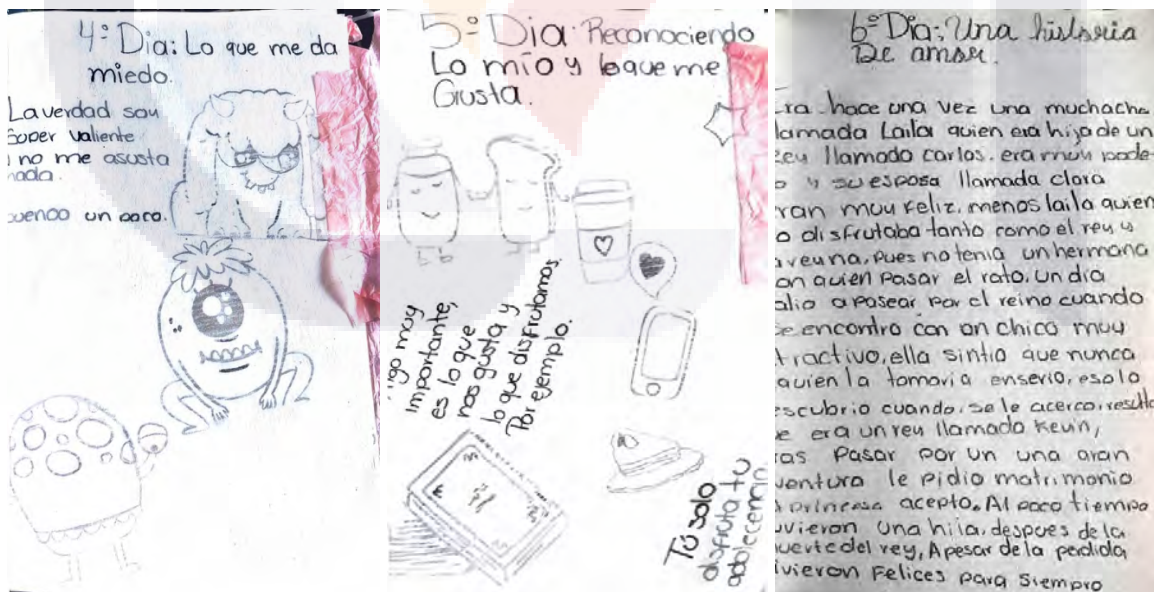 4º Dia: Lo que me da
miedo.
La verdad soy
Super valiente
no me asusta
nada.
bueno un poco.
5º Dia: Reconociendo
Lo mío y lo que me
Gusta.
Algo muy
importante,
es lo que
nos gusta y
lo que disfrutamos.
Por ejemplo.
Tú solo
disfruta tu
adolecencia
6º Dia: Una historia
De amor.
Era hace una vez una muchacha
llamada Laila quien era hija de un
rey llamado carlos. era muy pode-
y su esposa llamada clara
eran muy feliz, menos laila quien
no disfrutaba tanto como el rey y
la reyna, pues no tenia un hermana
con quien pasar el rato, un día
salio a pasear por el reino cuando
se encontro con un chico muy
atractivo, ella sintio que nunca
alguien la tomaria enserio, eso lo
descubrio cuando, se le acerco, resulta
que era un rey llamado Kevin,
tras pasar por un una gran
aventura le pidio matrimonio
la princesa acepto. Al poco tiempo
tuvieron una hija, despues de la
muerte del rey, Apesar de la pedida
vivieron Felices para Siempre